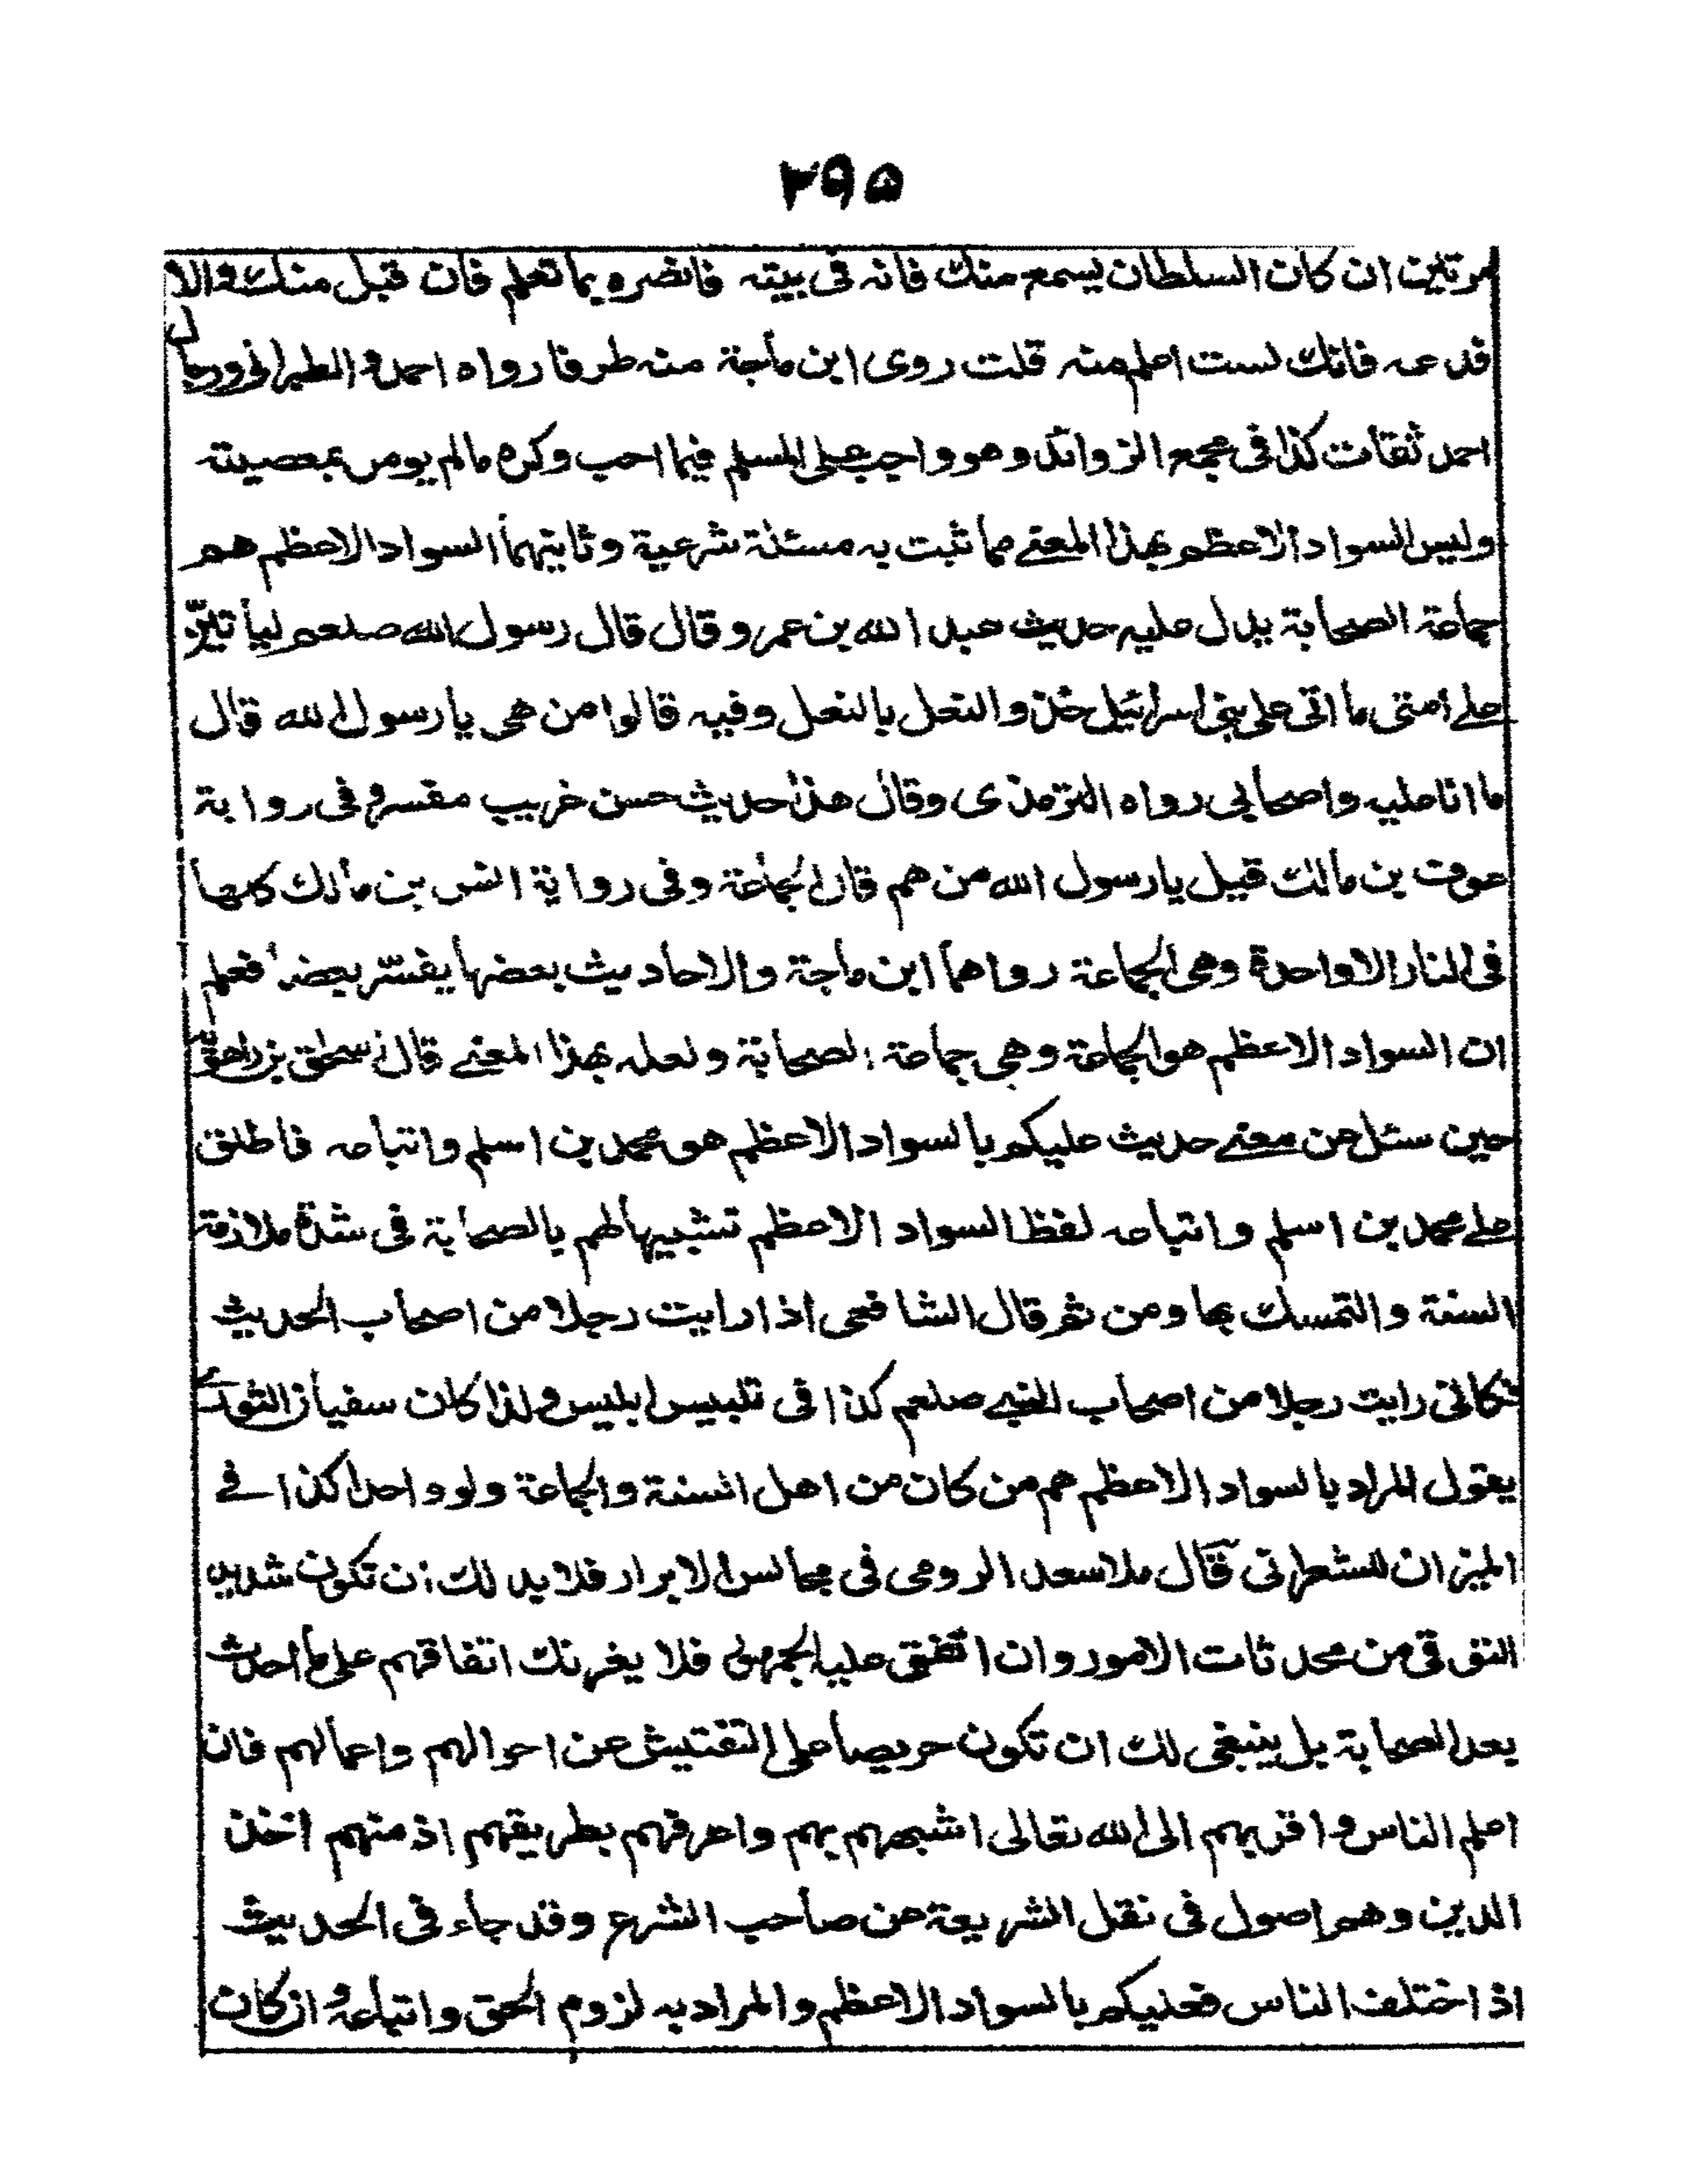 ۲۹۵
مرتين ان كان السلطان يسمع منك فانه فى بيته فانصره بما تعلم فان قبل منك والا
فدعه فانك لست اعلم منه قلت روى ابن ماجة منه طرفا رواه احمد والطبرانى ورجال
احمد ثقات كذا فى مجمع الزوائد وهو واجب على المسلم فيما احب وكره مالم يومر بمعصيته
وليس السواد الاعظم بهذا المعنے مما ثبت به مسئلة شرعية وثانيهما السواد الاعظم هم
جماعة الصحابة يدل عليه حديث عبد الله بن عمرو قال قال رسول الله صلعم ليأتينّ
علے امتى ما اتى على بنى اسرائيل حذو النعل بالنعل وفيه قالوا من هى يا رسول الله قال
ما انا عليه واصحابى رواه الترمذى وقال هذا حديث حسن غريب مفسر وفى رواية
عوف بن مالك قيل يا رسول الله من هم قال الجماعة وفى رواية انس بن مالك كلها
فى النار الا واحدة وهى الجماعة رواهما ابن ماجة والاحاديث بعضها يفسّر بعضا فعلم
ان السواد الاعظم هو الجماعة وهى جماعة الصحابة ولعله بهذا المعنے قال اسحٰق بن راهويه
حين سئل عن معنے حديث عليكم بالسواد الاعظم هو محمد بن اسلم واتباعه فاطلق
علے محمد بن اسلم واتباعه لفظ السواد الاعظم تشبيها لهم بالصحابة فى شدة ملازمة
السنة والتمسك بها ومن ثم قال الشافعى اذا رايت رجلا من اصحاب الحديث
فكانى رايت رجلا من اصحاب النبے صلعم كذا فى تلبيس ابليس ولذا كان سفيان الثورے
يقول المراد بالسواد الاعظم هم من كان من اهل السنة والجماعة ولو واحدا كذا فے
الميزان للشعرانى قال ملا سعد الرومى فى مجالس الابرار فلا بد لك ان تكون شديد
التوقى من محدثات الامور وان اتفق عليه الجمهور فلا يغرنك اتفاقهم على ما احدث
بعد الصحابة بل ينبغى لك ان تكون حريصا على التفتيش عن احوالهم واعمالهم فان
اعلم الناس واقربهم الى الله تعالى اشبههم بهم واعرفهم بطريقهم اذ منهم اخذ
الدين وهم اصول فى نقل الشريعة عن صاحب الشرع وقد جاء فى الحديث
اذا اختلف الناس فعليكم بالسواد الاعظم والمراد به لزوم الحق واتباعه وان كان